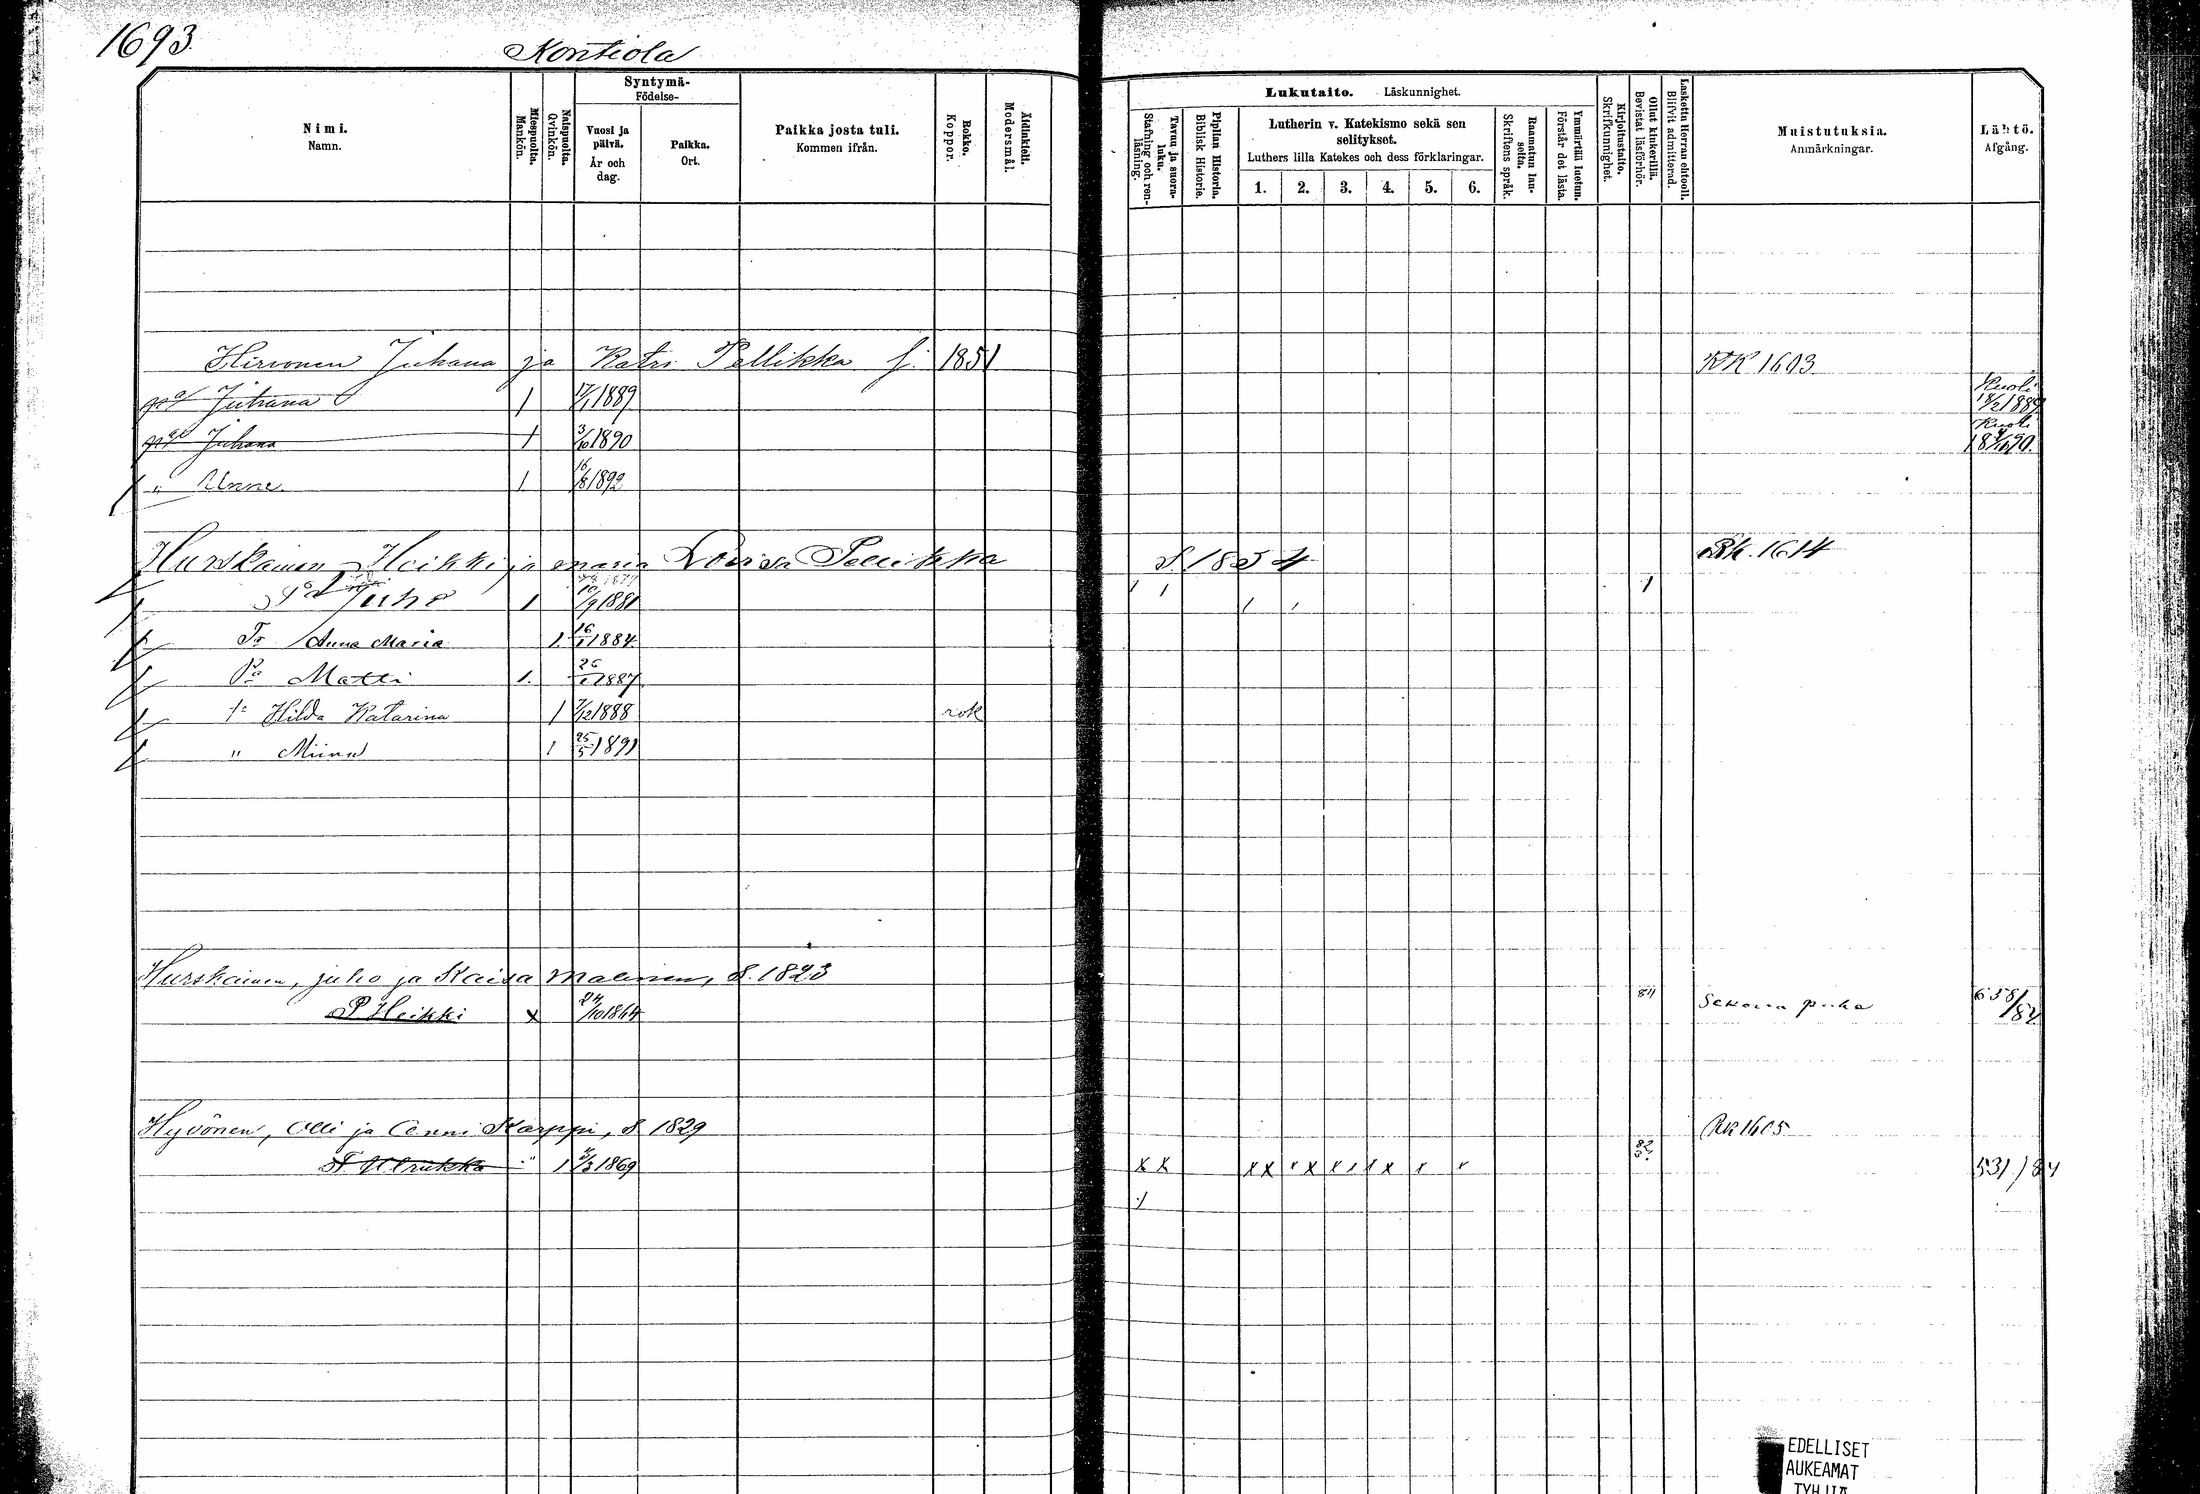 1693.
Kontiola
Nimi.
Namn.
Miespuolia.
Mankön.
Naispuolia.
Qvinkön.
Syntymä-
Födelse-
Vuosi ja päivä.
År och dag.
Paikka.
Ort.
Paikka josta tuli.
Kommen ifrån.
Rokko.
Koppor.
Äidinkieli.
Modersmål.
Lukutaito. Läskunnighet.
Tavuu ja suora-luku.
Stafning och ren-läsning.
Piplian Historia.
Biblisk Historie.
Lutherin v. Katekismo sekä sen selitykset.
Luthers lilla Katekes och dess förklaringar.
1. 2. 3. 4. 5. 6.
Raamatun lau-seita.
Skriftens språk.
Ymmärtää luetun.
Förstår det lästa.
Kirjoitustaito.
Skrifkunnighet.
Ollut kinkerillä.
Bevistat läsförhör.
Laskettu Herran ehtooll.
Blifvit admitterad.
Muistutuksia.
Anmärkningar.
Lähtö.
Afgång.
Hirvonen Juhana ja Katri Pellikka f. 1851 RK 1603
Juhana 1 17/1 1889 Kuoli 18/2 1889
Juhana 1 3/10 1890 Kuoli
" Unne. 1. 16/8 1892
Hurskainen Heikki ja Maria Lovisa Pellikka S. 1854 Rk. 1614
Juho 1 10/9 1881 1 1 1 1 1
Tr Anna Maria 1. 16/1 1884.
Pa Matti 1. 26/1 1887.
Hilda Katarina 1 7/12 1888 rok
" Miina 1 25/5 1891
Hurskainen, Juho ja Kaisa Malinen, S. 1823
P Heikki x 24/10 1864 84 658/84
Hyvönen, Olli ja Anni Karppi, S. 1829 RK 1605
T Ulriikka " 1 2/3 1869 x x x x x x x x x 82 531/84
EDELLISET
AUKEAMAT
TYHJIA